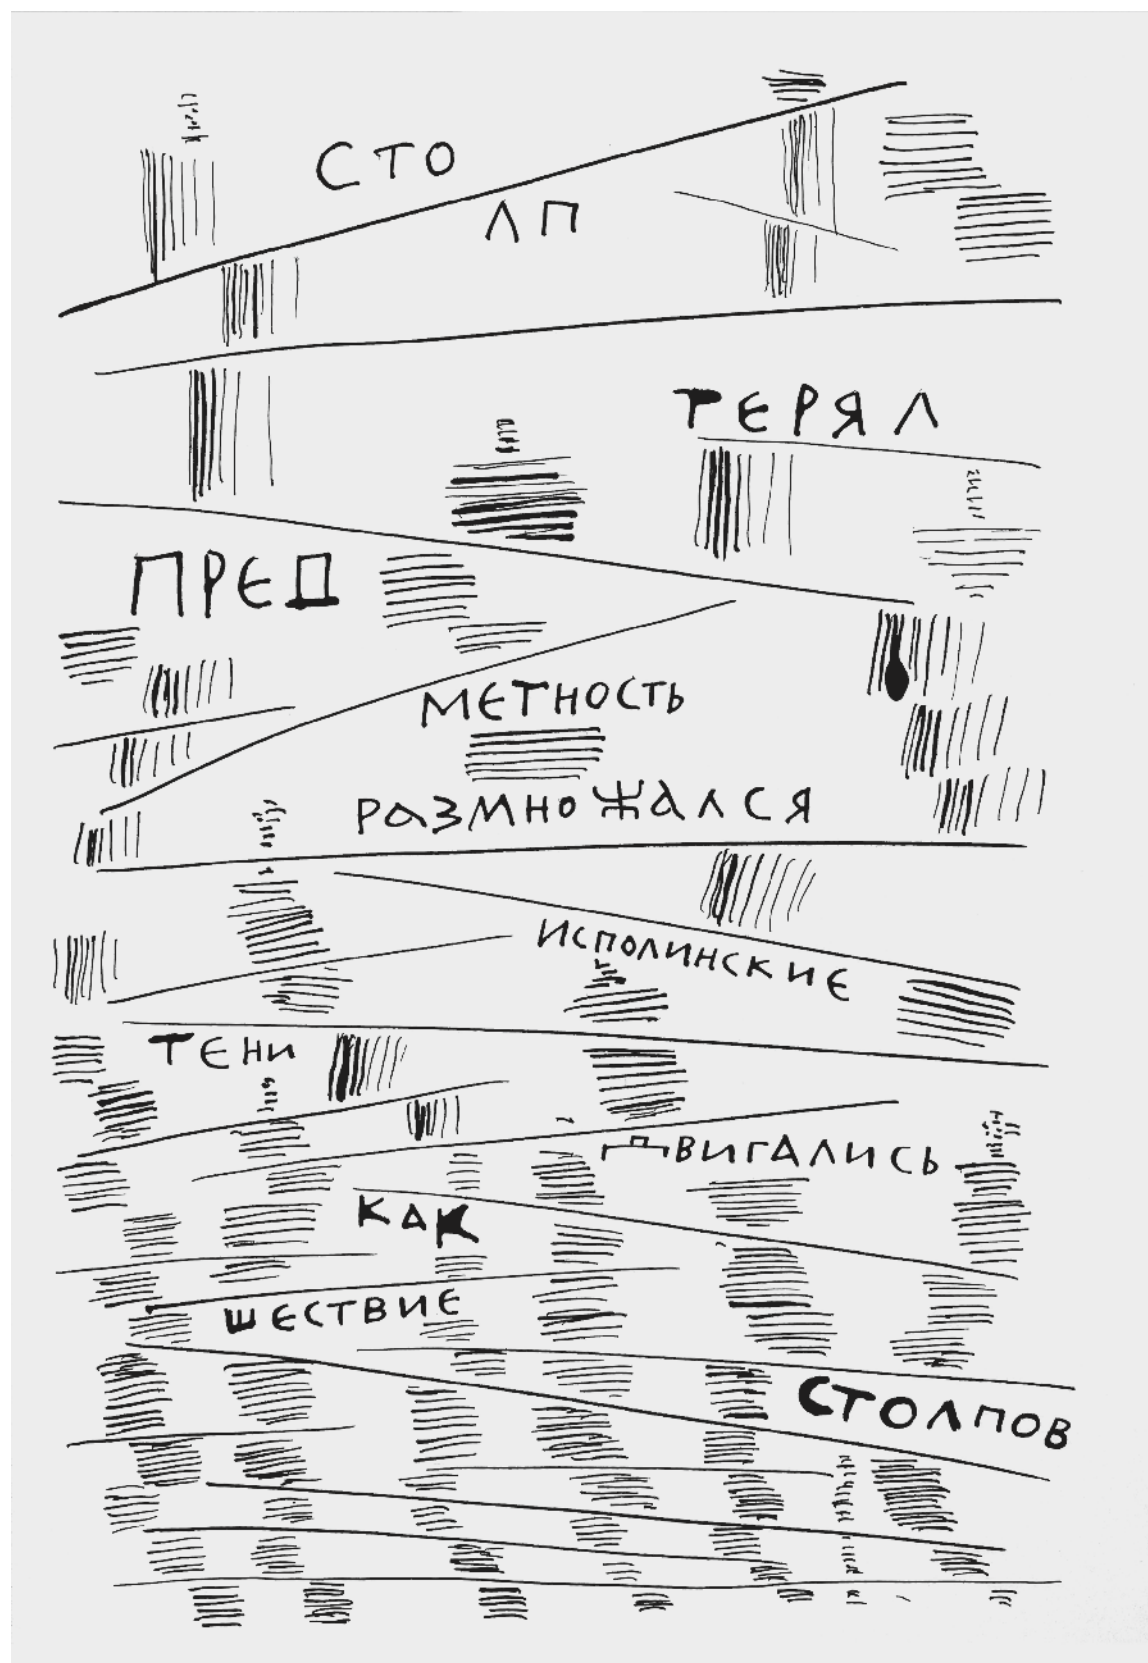 СТО
ЛП
ТЕРЯЛ
ПРЕД
МЕТНОСТЬ
РАЗМНОЖАЛСЯ
ИСПОЛИНСКИЕ
ТЕНИ
ДВИГАЛИСЬ
КАК
ШЕСТВИЕ
СТОЛПОВ